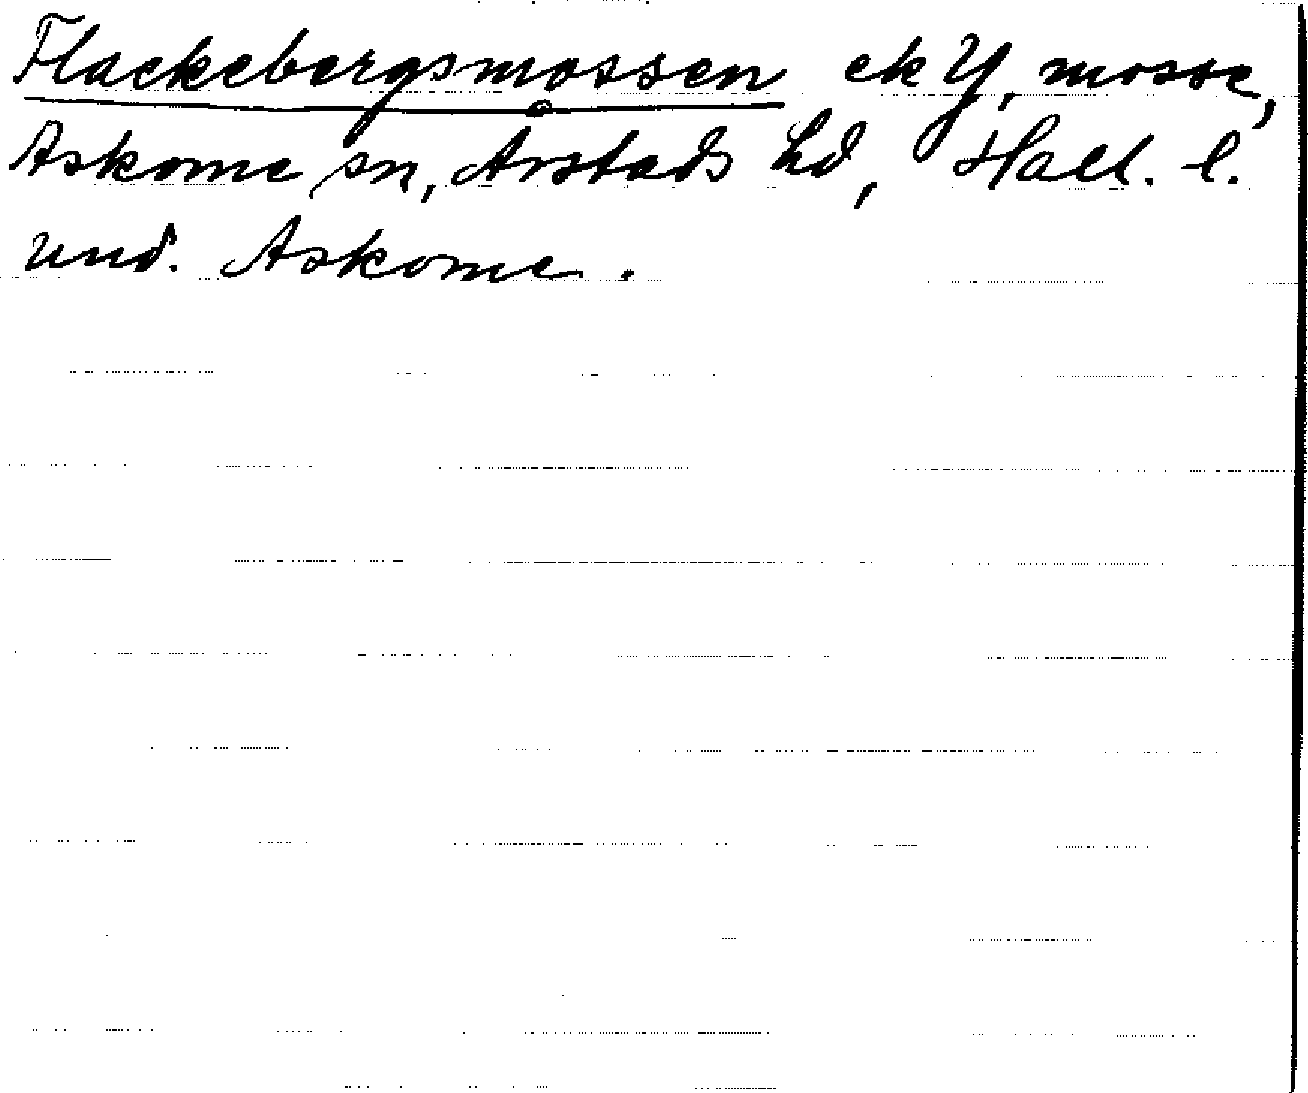 Flackebergsmossen ek Y, mosse,
Askome sn, Årstads hd, Hall. l.
und. Askome.